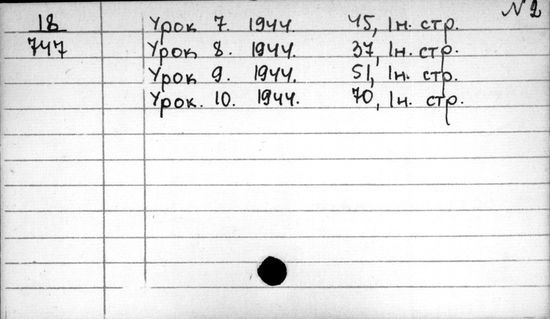 № 2
18
747
Урок 7. 1944. 45, Iн. стр.
Урок 8. 1944. 37, Iн. стр.
Урок 9. 1944. 51, Iн. стр.
Урок. 10. 1944. 70, Iн. стр.